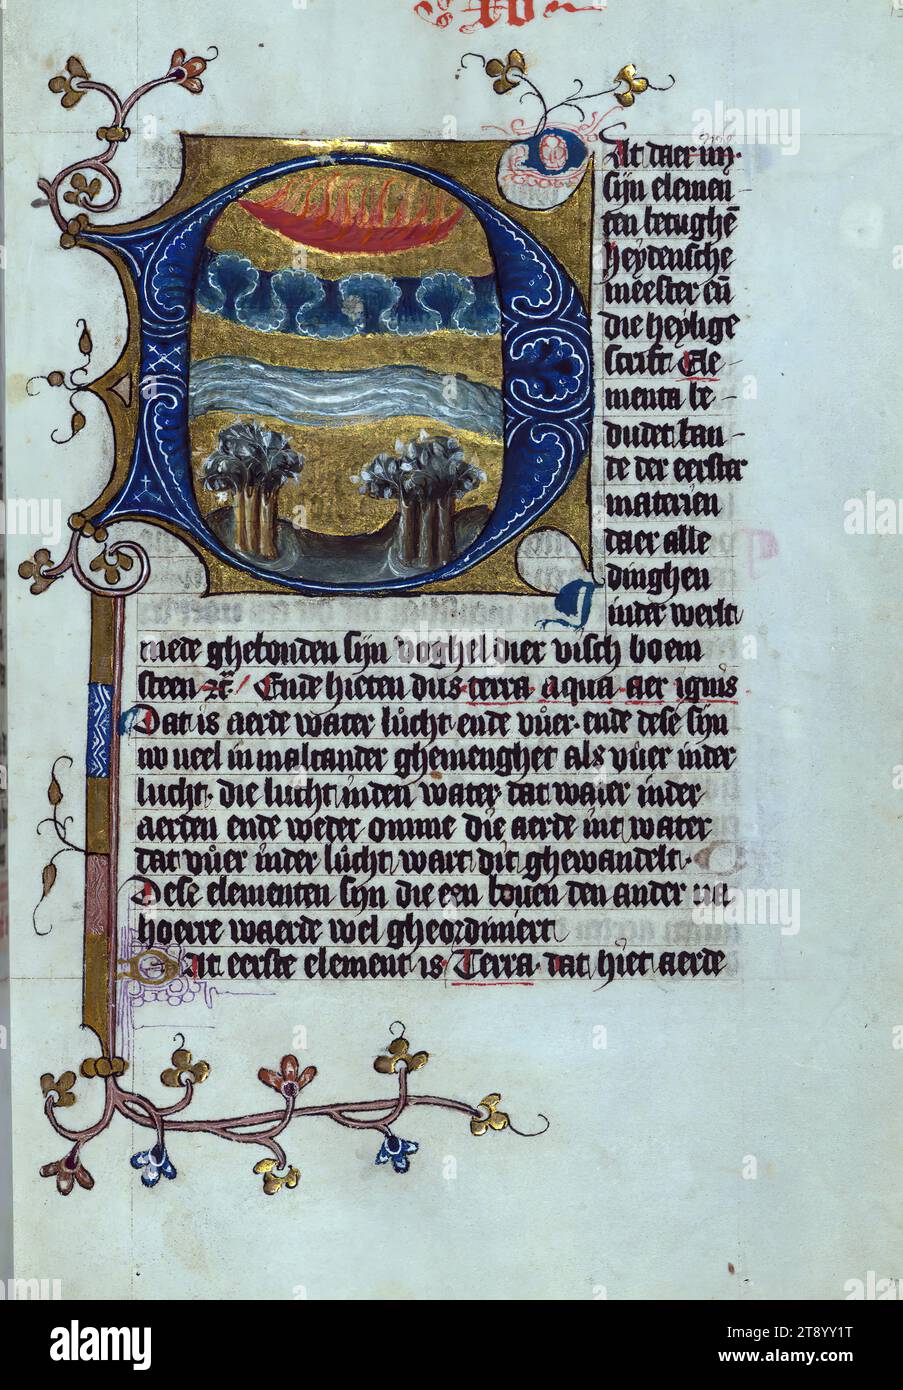 XV
At daer iiij
sijn elemen
ten betughē
heydensche
meester eñ
die heylige
scrift Ele
menta be
dudet kan
de der eerster
materien
daer alle
dinghen
inder werlt
mede ghebonden sijn voghel dier visch boem
steen Ende hieten dus terra aqua aer ignis
Dat is aerde water lůcht ende vůer ende dese sijn
no veel in malcander ghemenghet als vůer inder
lucht die lucht inden water dat water inder
aerden ende weder omme die aerde int water
dat vůer inder lůcht wart dit ghewandelt
Dese elementen sijn die een bouen den ander na
hoerre waerde wel gheordiniert
At eerste element is Terra dat hiet aerde
alamy
alamy
Image ID: 2T8YY1T
www.alamy.com